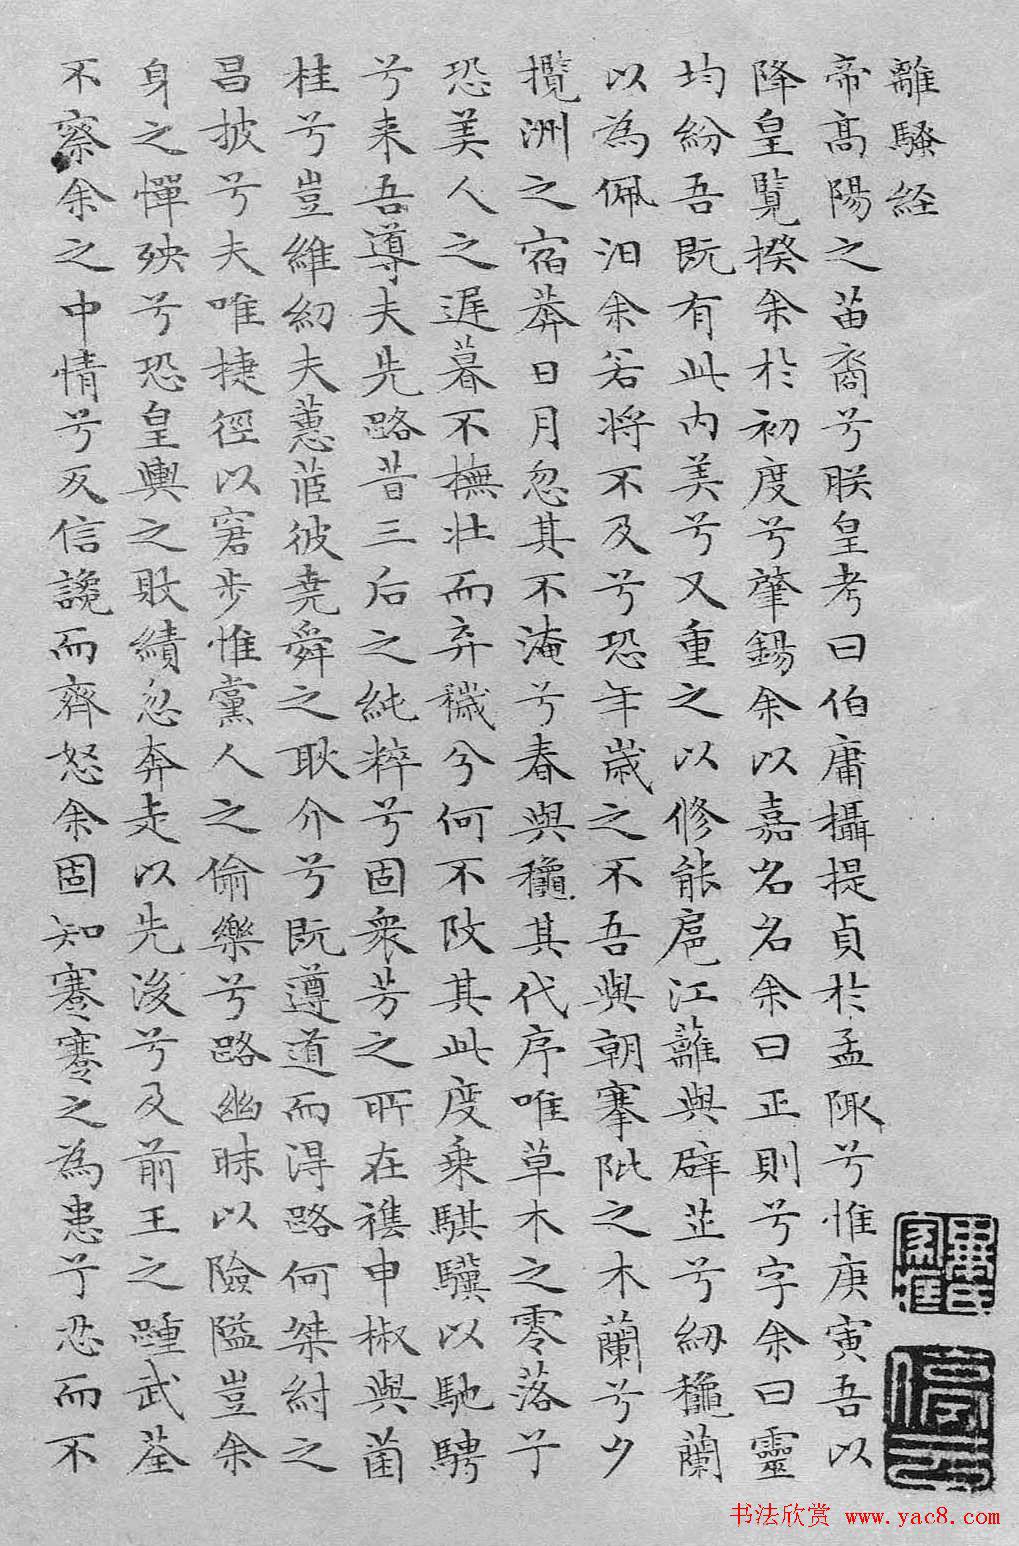 離騷経
帝高陽之苗裔兮朕皇考曰伯庸攝提貞於孟陬兮惟庚寅吾以
降皇覽揆余於初度兮肇錫余以嘉名名余曰正則兮字余曰靈
均紛吾既有此内美兮又重之以修能扈江蘺與辟芷兮紉穐蘭
以為佩汨余若將不及兮恐年歳之不吾與朝搴阰之木蘭兮夕
攬洲之宿莽日月忽其不淹兮春與穐其代序唯草木之零落兮
恐美人之遲暮不撫壯而弃穢兮何不改其此度乗騏驥以馳騁
兮来吾導夫先路昔三后之純粹兮固衆芳之所在襍申椒與菌
桂兮豈維紉夫蕙茝彼堯舜之耿介兮既遵道而得路何桀紂之
昌披兮夫唯捷徑以窘步惟黨人之偷樂兮路幽昧以險隘豈余
身之憚殃兮恐皇輿之敗績忽奔走以先後兮及前王之踵武荃
不察余之中情兮反信讒而齊怒余固知謇謇之為患兮忍而不
停雲
书法欣赏 www.yac8.com